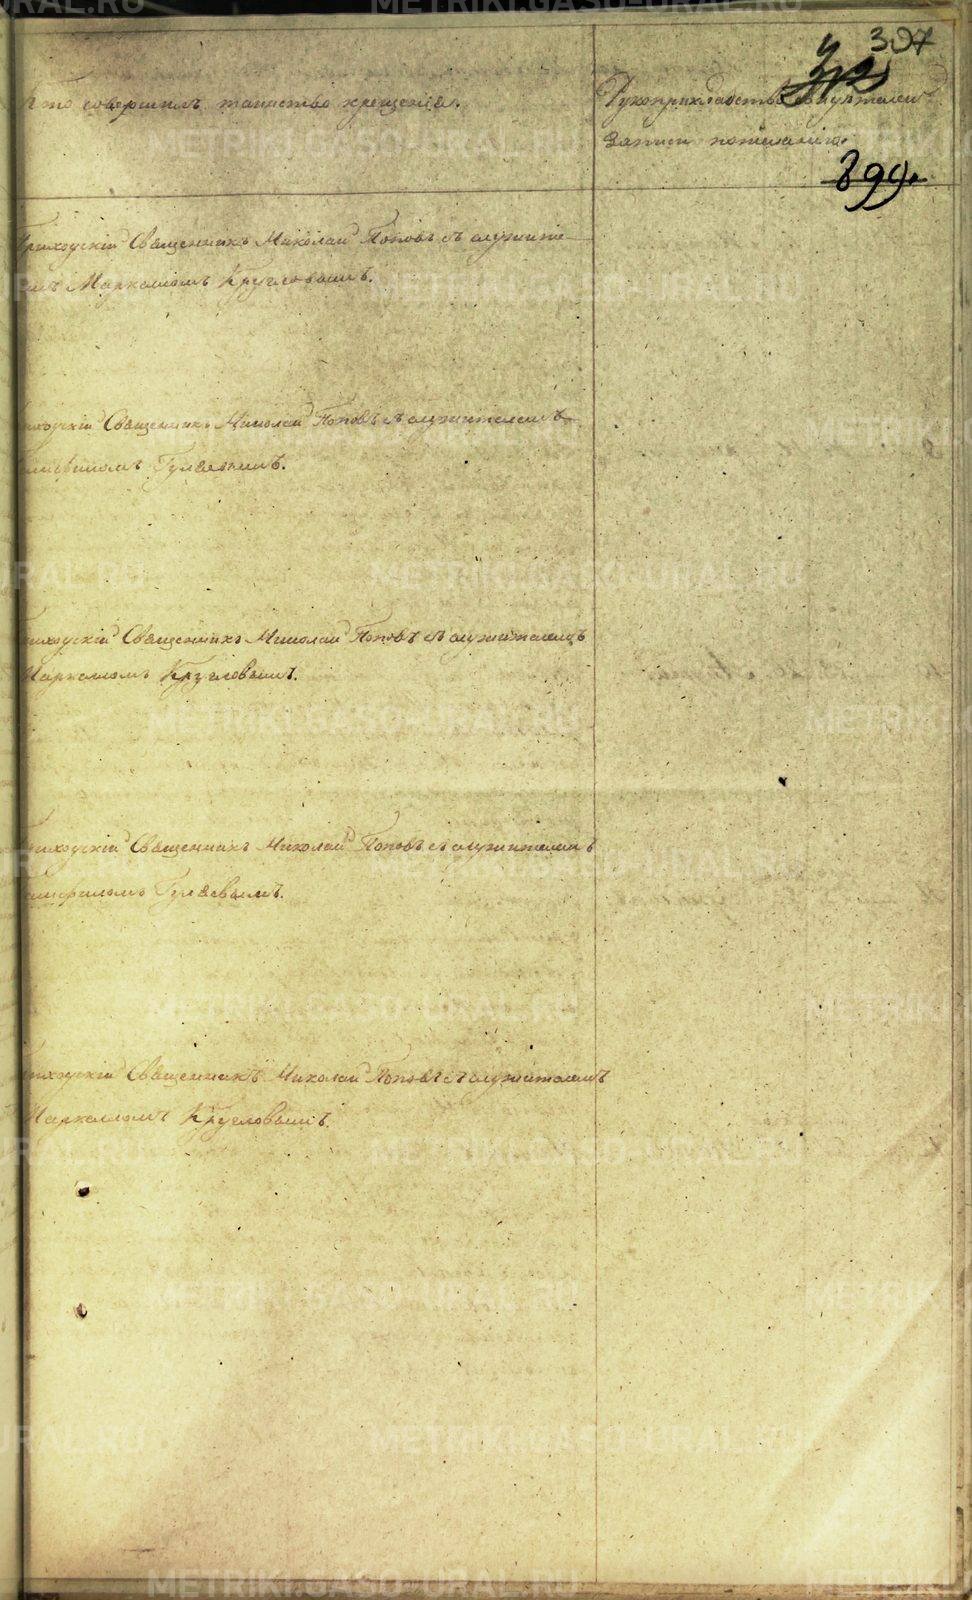 307
Кто совершилъ таинство крещенія.
Рукоприкладство свидѣтелей
записи по желанію.
899.
Приходскій Священникъ Николай Поповъ съ служите-
лемъ Маркомомъ Кругловымъ.
Приходскій Священникъ Николай Поповъ съ служителемъ
Гуляевымъ.
Приходскій Священникъ Николай Поповъ съ служителемъ
Кругловымъ.
Приходскій Священникъ Николай Поповъ съ служителемъ
Гуляевымъ.
Приходскій Священникъ Николай Поповъ съ служителемъ
Кругловымъ.
METRIKI.GASO-URAL.RU